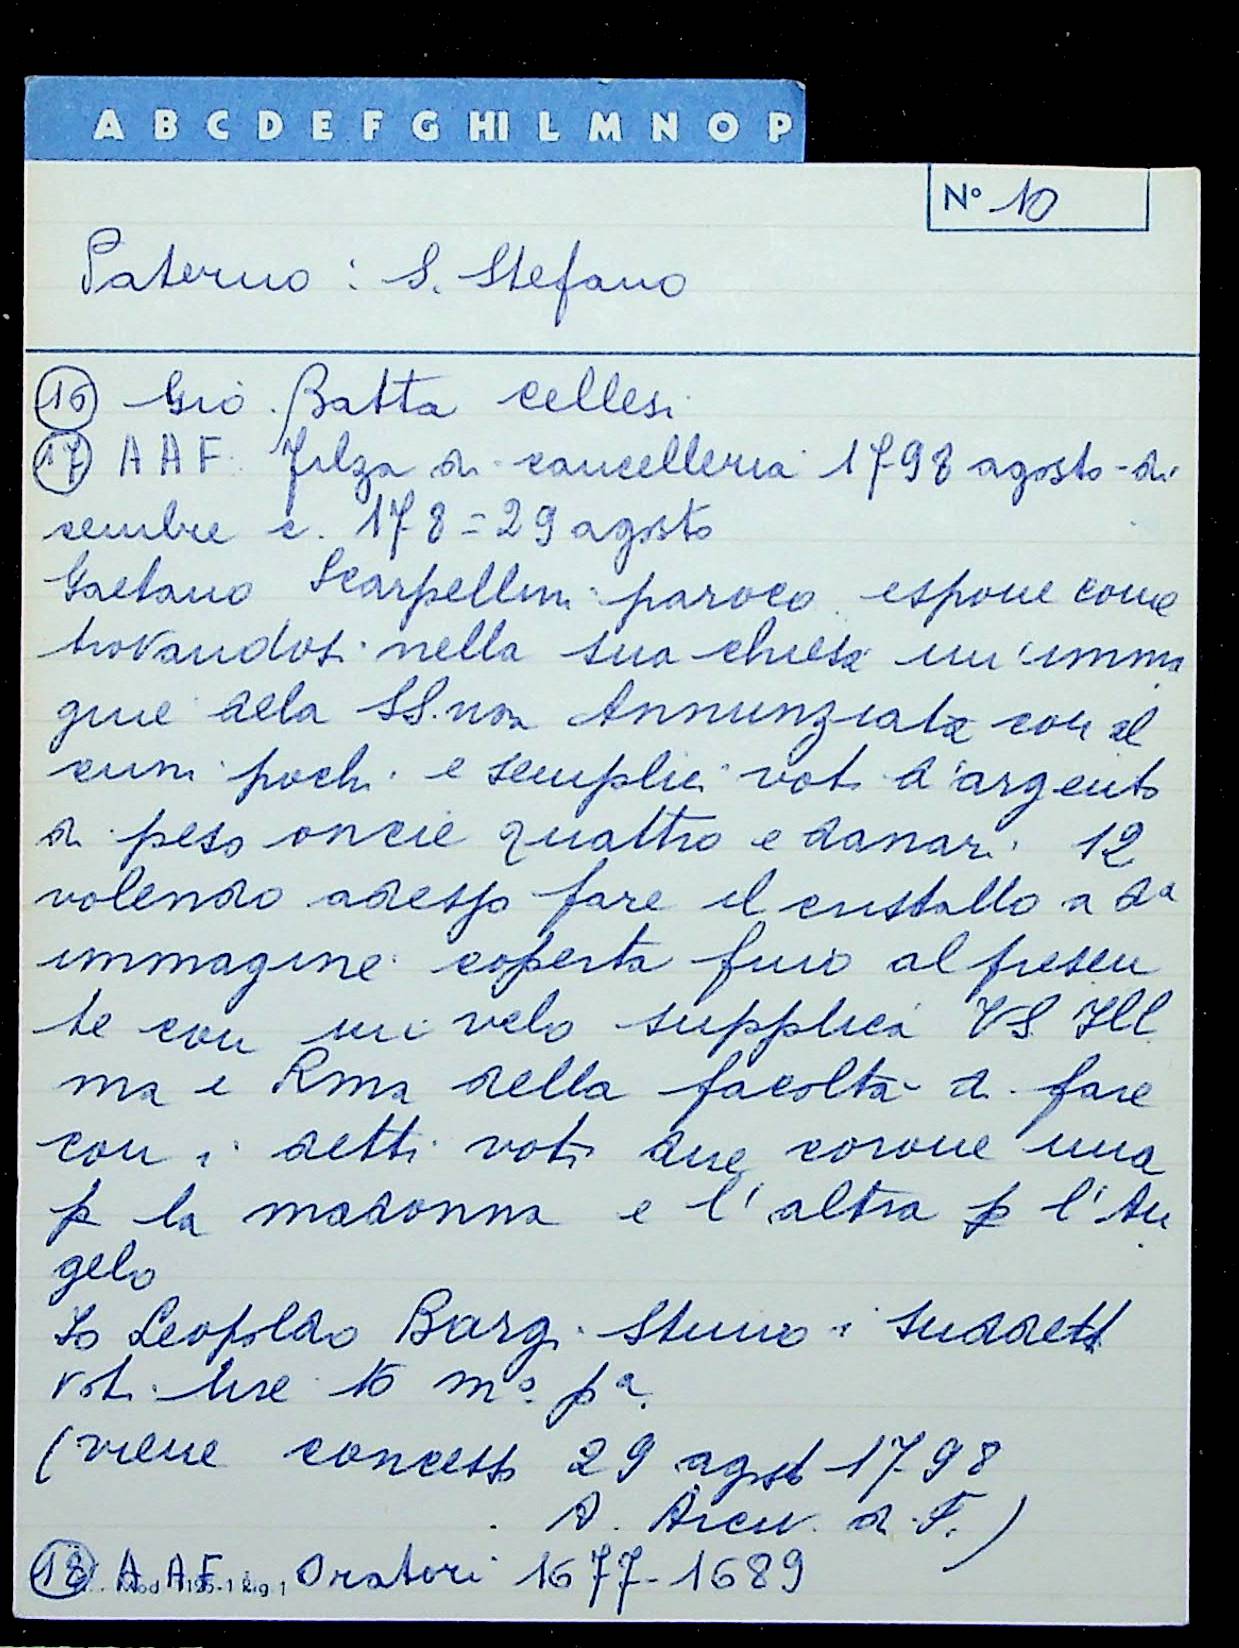 A B C D E F G HI L M N O P
N° 10
Paterno : S. Stefano
16 Gio. Batta Cellesi
17 A A F. Filza di cancelleria 1798 agosto-di
cembre c. 178 = 29 agosto
Gaetano Scarpellini paroco espone come
trovandosi nella sua chiesa un'imma
gine dela SS.ma Annunziata con al
cuni pochi e semplici voti d'argento
di peso oncie quattro e danari 12
volendo adesso fare il cristallo a da
immagine coperta fino al presen
te con un velo supplica VS Ill
ma e Rma della facoltà di fare
con i detti voti due corone una
p la madonna e l'altra p l'An
gelo
Io Leopoldo Bargi Stimo i suddetti
voti lire 16 mo. pa.
(viene concesso 29 agosto 1798
A. Arciv. di F. )
18 A A F. Oratori 1677-1689